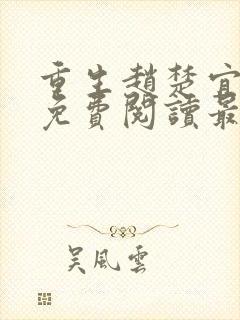 重生趙楚宜
免費閱讀最
吴風雲